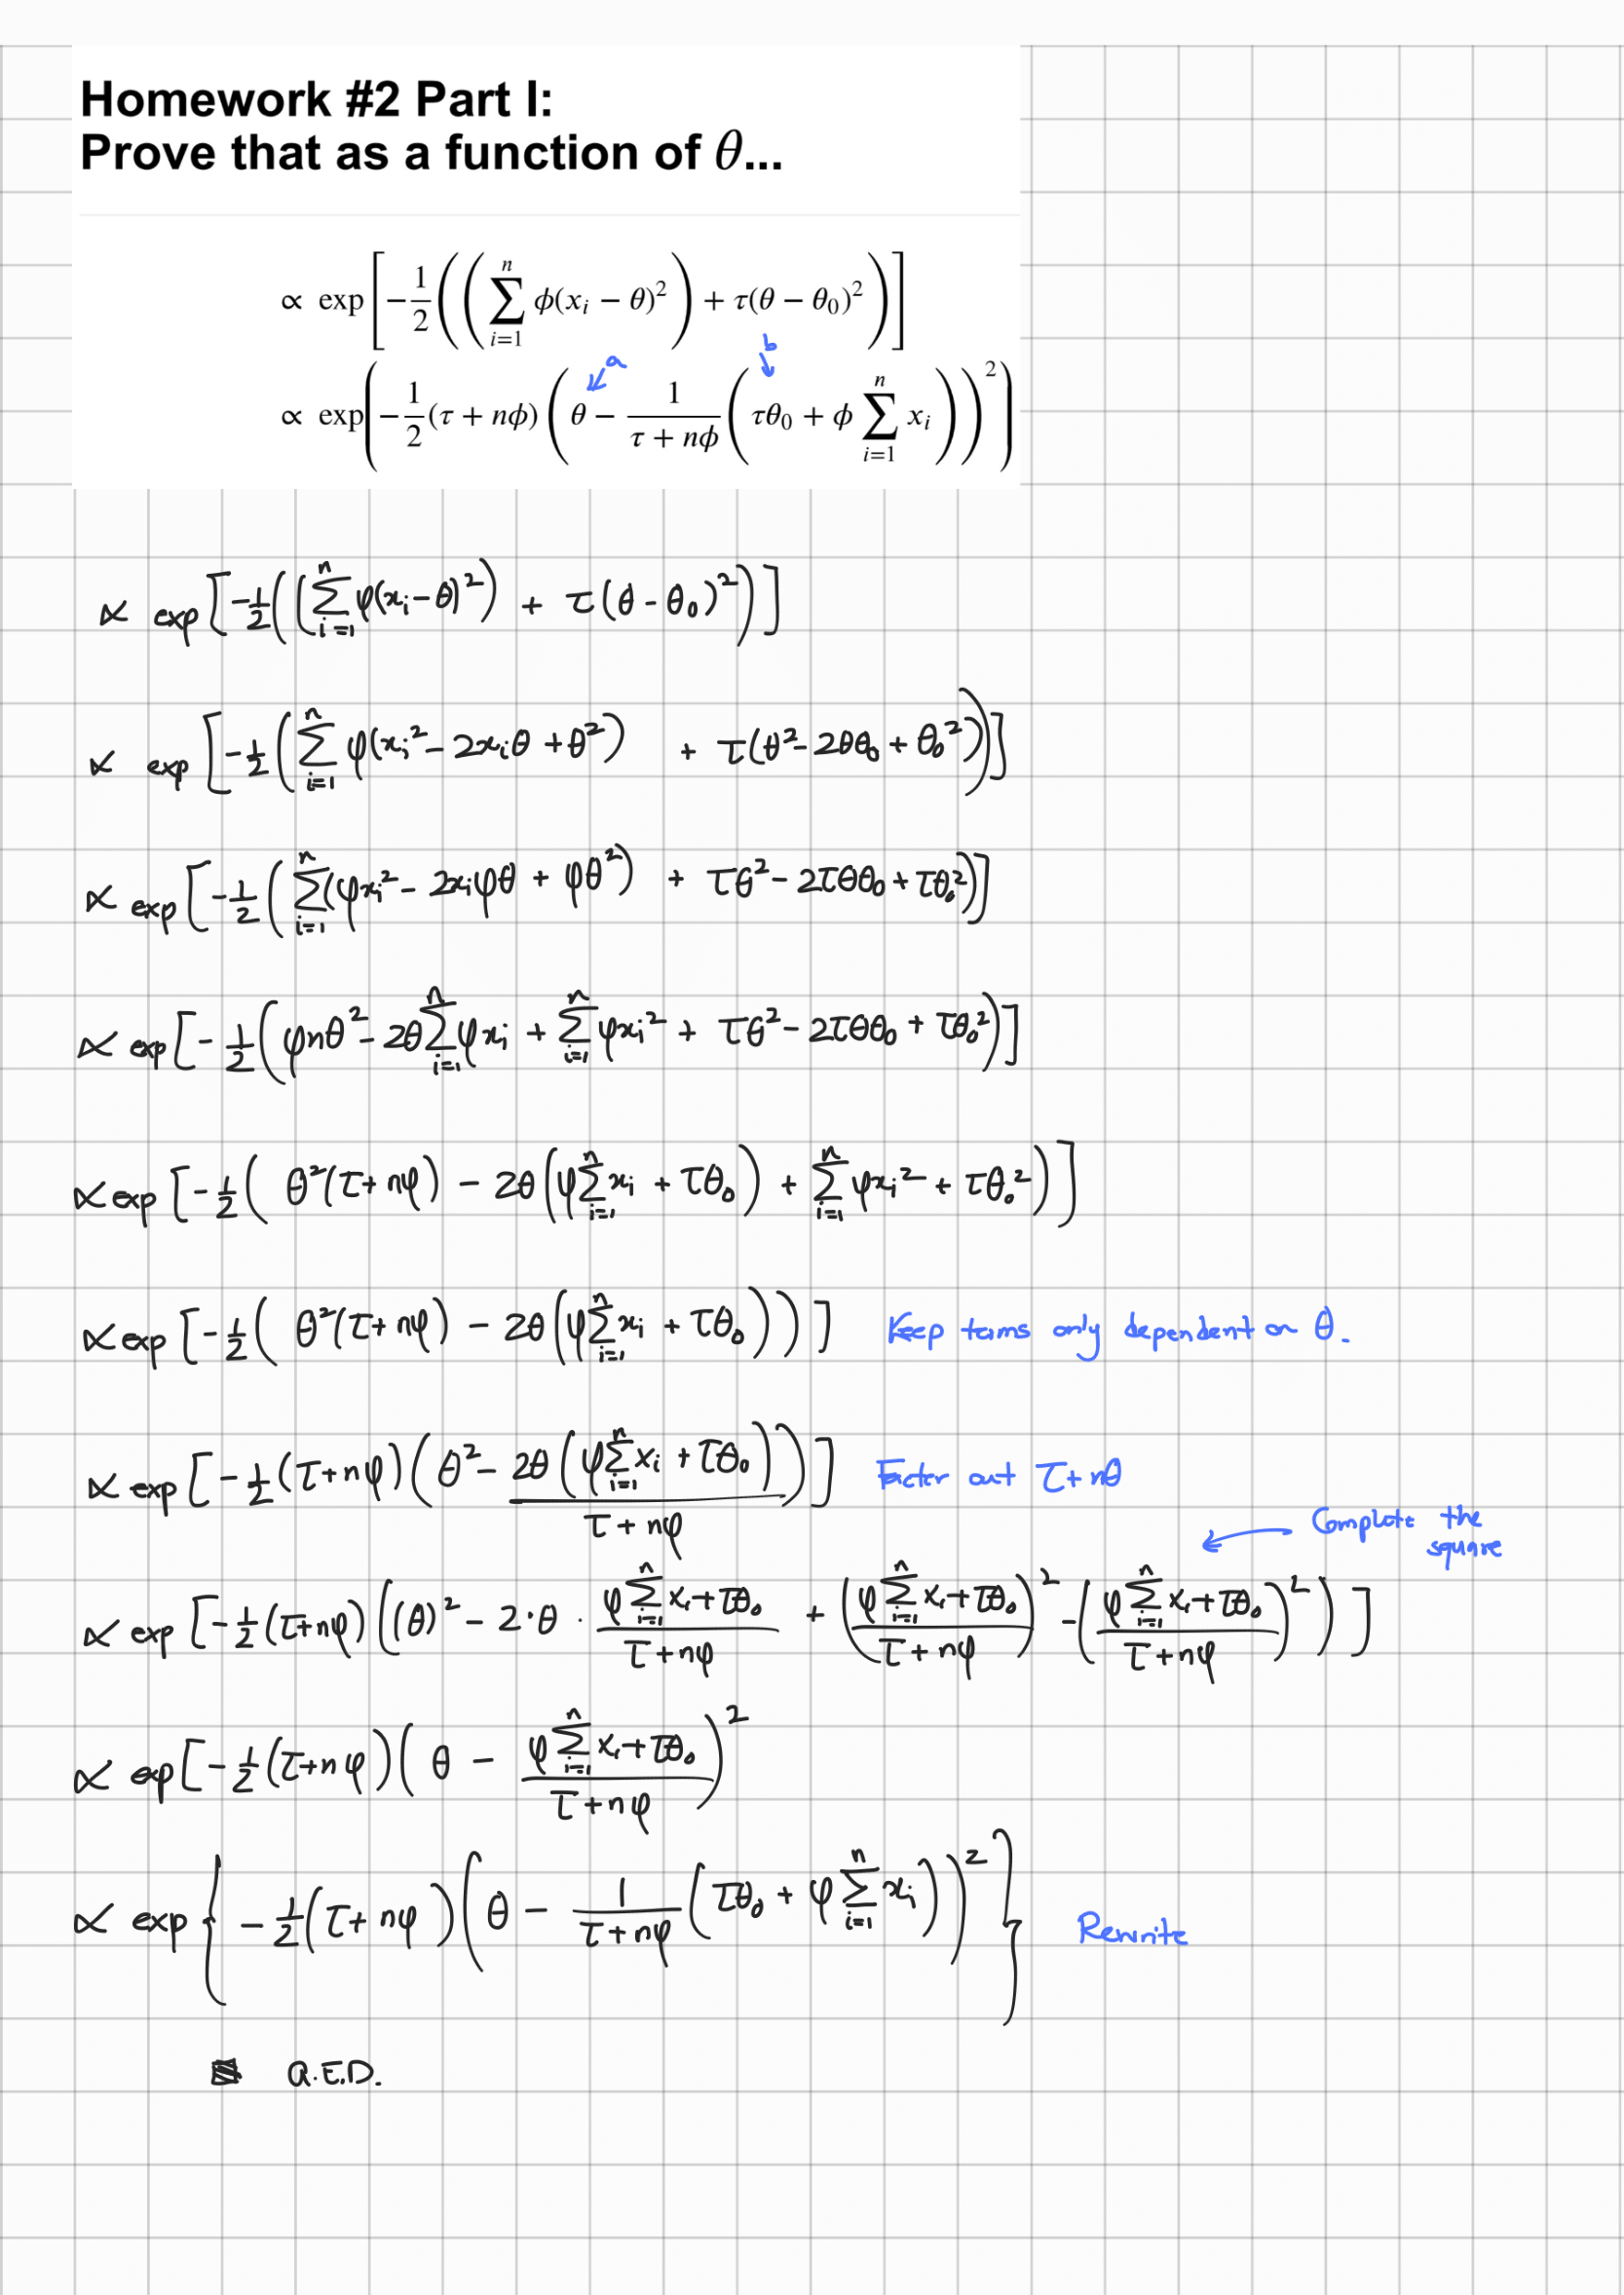 Homework #2 Part I:
Prove that as a function of θ...
∝ exp[−1/2((∑_{i=1}^{n} ϕ(x_i − θ)^2) + τ(θ − θ_0)^2)]
a b
∝ exp(−1/2(τ + nϕ)(θ − 1/(τ + nϕ)(τθ_0 + ϕ∑_{i=1}^{n} x_i))^2)
∝ exp[−1/2((∑_{i=1}^{n} φ(x_i − θ)^2) + τ(θ − θ_0)^2)]
∝ exp[−1/2(∑_{i=1}^{n} φ(x_i^2 − 2x_iθ + θ^2) + τ(θ^2 − 2θθ_0 + θ_0^2))]
∝ exp[−1/2(∑_{i=1}^{n}(φx_i^2 − 2x_iφθ + φθ^2) + τθ^2 − 2τθθ_0 + τθ_0^2)]
∝ exp[−1/2(φnθ^2 − 2θ∑_{i=1}^{n}φx_i + ∑_{i=1}^{n}φx_i^2 + τθ^2 − 2τθθ_0 + τθ_0^2)]
∝ exp[−1/2(θ^2(τ + nφ) − 2θ(φ∑_{i=1}^{n}x_i + τθ_0) + ∑_{i=1}^{n}φx_i^2 + τθ_0^2)]
∝ exp[−1/2(θ^2(τ + nφ) − 2θ(φ∑_{i=1}^{n}x_i + τθ_0))] Keep terms only dependent on θ.
∝ exp[−1/2(τ + nφ)(θ^2 − 2θ(φ∑_{i=1}^{n}x_i + τθ_0)/(τ + nφ))] Factor out τ + nθ
Complete the
square
∝ exp[−1/2(τ + nφ)((θ)^2 − 2·θ·(φ∑_{i=1}^{n}x_i + τθ_0)/(τ + nφ) + ((φ∑_{i=1}^{n}x_i + τθ_0)/(τ + nφ))^2 − ((φ∑_{i=1}^{n}x_i + τθ_0)/(τ + nφ))^2)]
∝ exp[−1/2(τ + nφ)(θ − (φ∑_{i=1}^{n}x_i + τθ_0)/(τ + nφ))^2
∝ exp{−1/2(τ + nφ)(θ − 1/(τ + nφ)(τθ_0 + φ∑_{i=1}^{n}x_i))^2} Rewrite
Q.E.D.